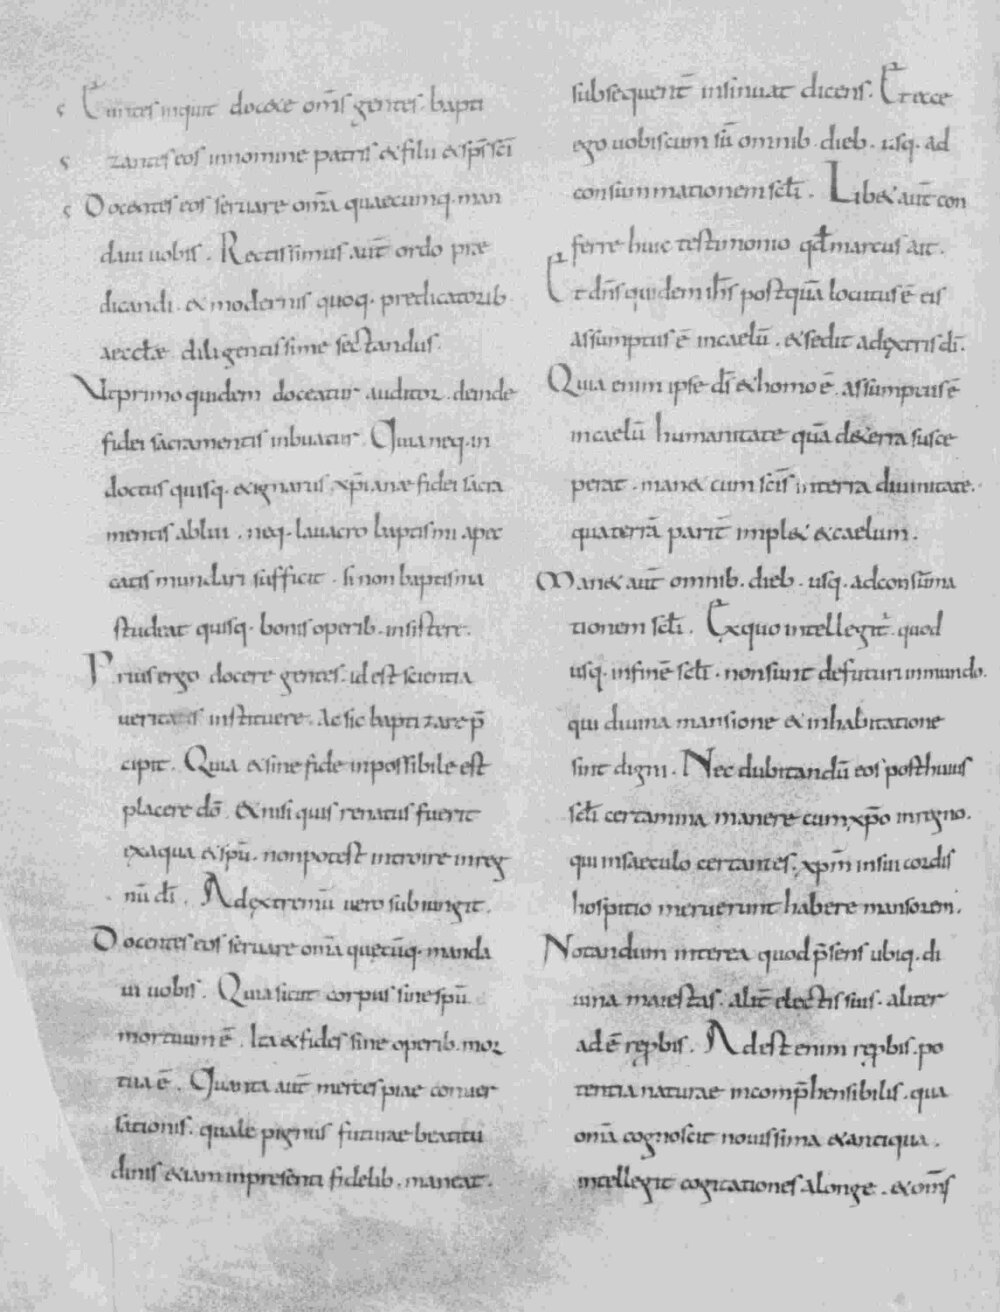 Euntes inquit docete om̅s gentes. bapti
zantes eos innomine patris & filii & sp̅s sc̅i
Docentes eos seruare om̅a quaecumq. man
daui uobis. Rectissimus aut̅ ordo præ
dicandi. & modernis quoq. predicatorib.
aeccl̅æ diligentissime sectandus.
Vt primo quidem doceatur auditor. deinde
fidei sacramentis inbuatur. Quia neq. in
doctus quisq. & ignarus xp̅ianæ fidei sacra
mentis ablui. neq. lauacro baptismi a pec
catis mundari sufficit. si non baptisma
studeat quisq. bonis operib. insistere.
Prius ergo docere gentes. id est scientia
ueritatis instituere. Ac sic baptizare p̅
cipit. Quia & sine fide inpossibile est
placere dō. & nisi quis renatus fuerit
ex aqua & spū. non potest introire inreg
nū dī. Ad extremū uero subiungit.
Docentes eos seruare om̅a quecūq. manda
ui uobis. Quia sicut corpus sine spū
mortuum ē. Ita & fides sine operib. mor
tua ē. Quanta aut̅ merces piae conuer
sationis. quale pignus futurae beatitu
dinis &iam inpresenti fidelib. maneat.
subsequent̅ insinuat dicens. Et ecce
ego uobiscum sū omnib. dieb. usq. ad
consummationem scl̅i. Lib& aut̅ con
ferre huic testimonio qd̅ marcus ait.
Et dn̅s quidem ih̅s postquā locutus ē eis
assumptus ē incaelū. & sedit ad extris dī.
Quia enim ipse dś & homo ē. assumptus ē
incaelū humanitate quā de terra susce
perat. man& cum sc̅is interra diuinitate.
qua terrā parit̅ impl& & caelum.
Man& aut̅ omnib. dieb. usq. adconsūma
tionem scl̅i. Ex quo intellegit̅. quod
usq. infinē scl̅i. non sunt defuturi inmundo.
qui diuina mansione & inhabitatione
sint digni. Nec dubitandū eos post huius
scl̅i certamina manere cum xp̅o inregno.
qui insaeculo certantes. xp̅m insui cordis
hospitio meruerunt habere mansorem.
Notandum interea quod p̅sens ubiq. di
uina maiestas. alit̅ electis suis. aliter
ad ē rep̅bis. Adest enim rep̅bis. po
tentia naturae incomp̅hensibilis. qua
om̅a cognoscit nouissima & antiqua.
intellegit cogitationes a longe. & om̅s